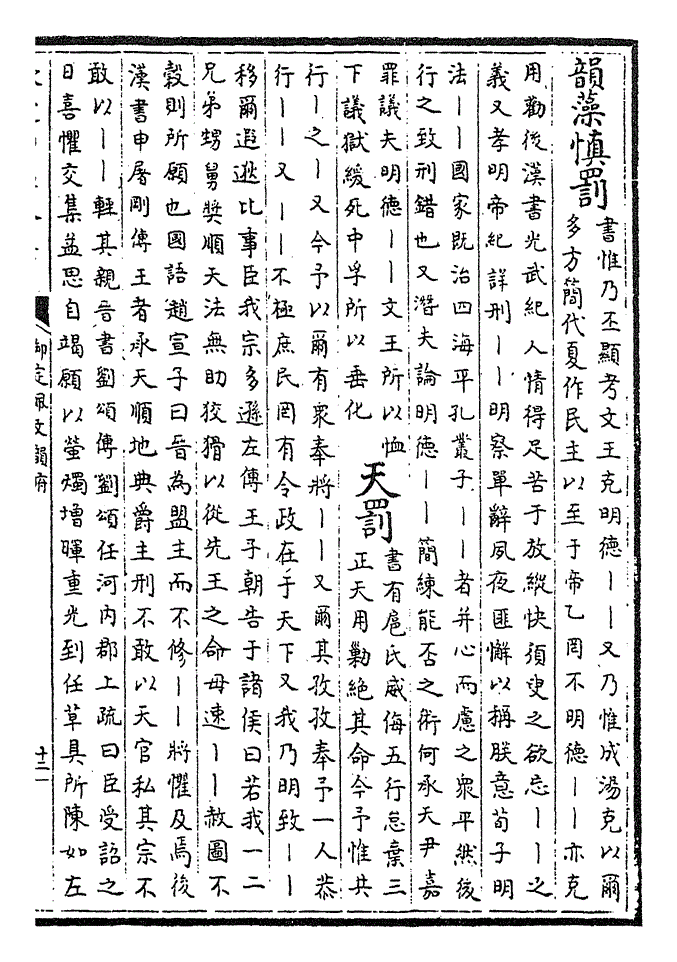 韻藻慎罰
書惟乃丕顯考文王克明德丨丨又乃惟成湯克以爾
多方簡代夏作民主以至于帝乙罔不明德丨丨亦克
用勸後漢書光武紀人情得足苦于放縱快須臾之欲忘丨丨之
義又孝明帝紀詳刑丨丨明察單辭夙夜匪懈以稱朕意荀子明
法丨丨國家既治四海平孔叢子丨丨者并心而慮之衆平然後
行之致刑錯也又潛夫論明德丨丨簡練能否之術何承天尹嘉
罪議夫明德丨丨文王所以恤
下議獄緩死中孚所以垂化
天罰
書有扈氏威侮五行怠棄三
正天用勦絶其命今予惟共
行丨之丨又今予以爾有衆奉將丨丨又爾其孜孜奉予一人恭
行丨丨又丨丨不極庶民罔有令政在于天下又我乃明致丨丨
移爾遐逖比事臣我宗多遜左傳王子朝告于諸侯曰若我一二
兄弟甥舅獎順天法無助狡猾以從先王之命毋速丨丨赦圖不
穀則所願也國語趙宣子曰晉為盟主而不修丨丨將懼及焉後
漢書申屠剛傳王者承天順地典爵主刑不敢以天官私其宗不
敢以丨丨輕其親晉書劉頌傳劉頌任河内郡上疏曰臣受詔之
日喜懼交集益思自竭願以螢燭增暉重光到任草具所陳如左
御定佩文韻府